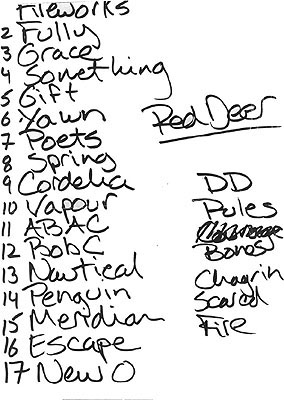 Fireworks
2 Fully
3 Grace
4 Something
5 Gift
6 Yawn
7 Poets
8 Spring
9 Cordelia
10 Vapour
11 ABAC
12 Bob C
13 Nautical
14 Penguin
15 Meridian
16 Escape
17 New O
Red Deer
DD
Rules
Bones
Chagrin
Scared
Fire